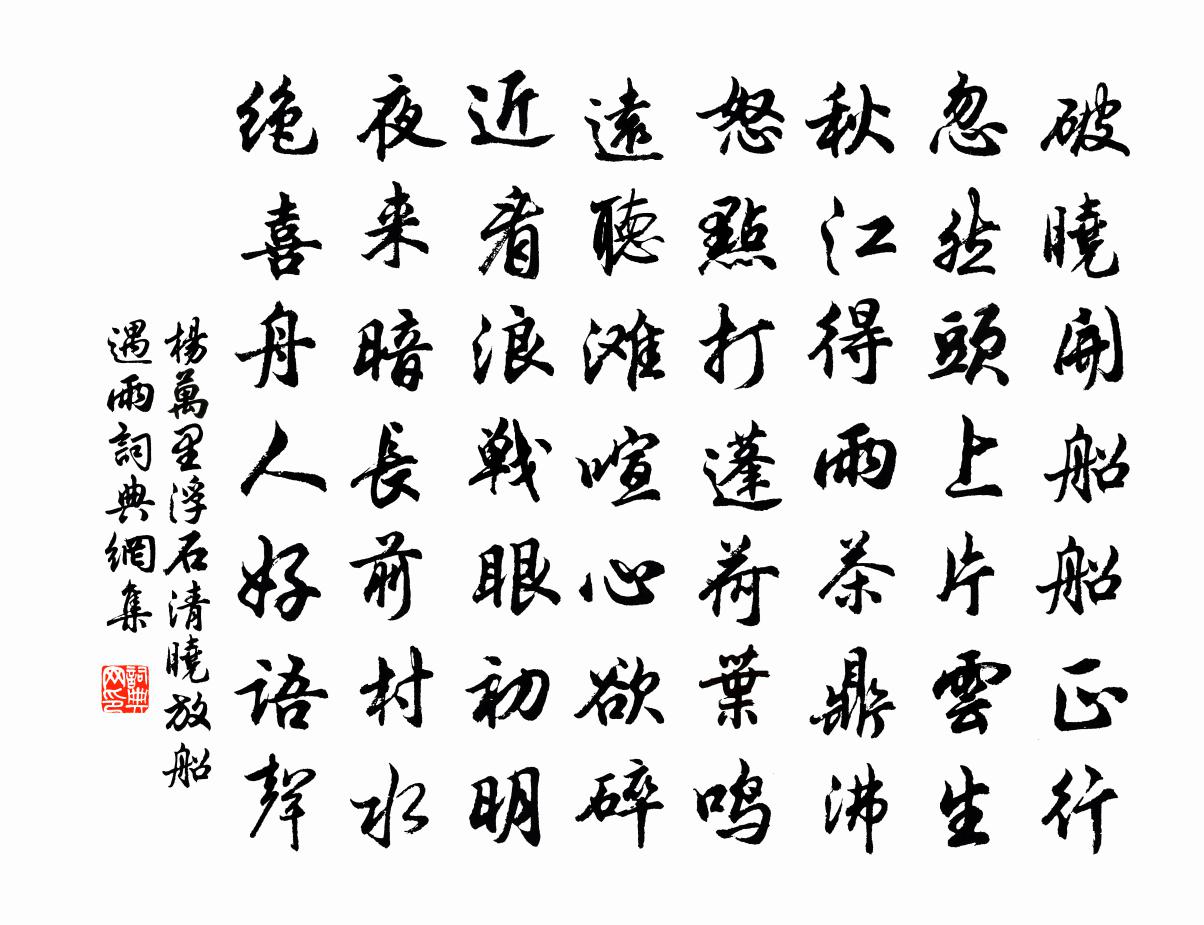 破曉開船船正行
忽然頭上片雲生
秋江得雨茶鼎沸
怒點打蓬荷葉鸣
遠聽滩喧心欲碎
近看浪戦眼初明
夜来暗長前村水
绝喜舟人好語聲
楊萬里浮石清曉放船
遇雨詞典網集
詞典网印